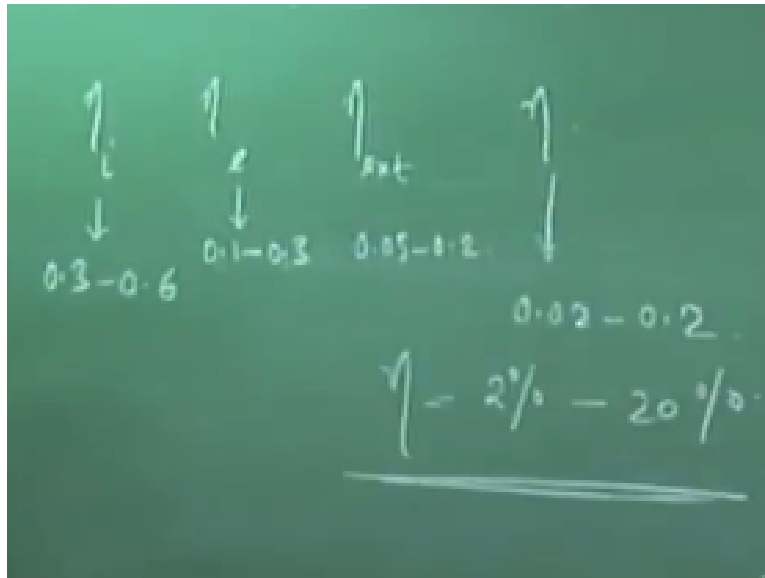 η_i η_e η_ext η
↓ ↓ ↓
0.3-0.6 0.1-0.3 0.05-0.2
0.02 - 0.2
η - 2% - 20%